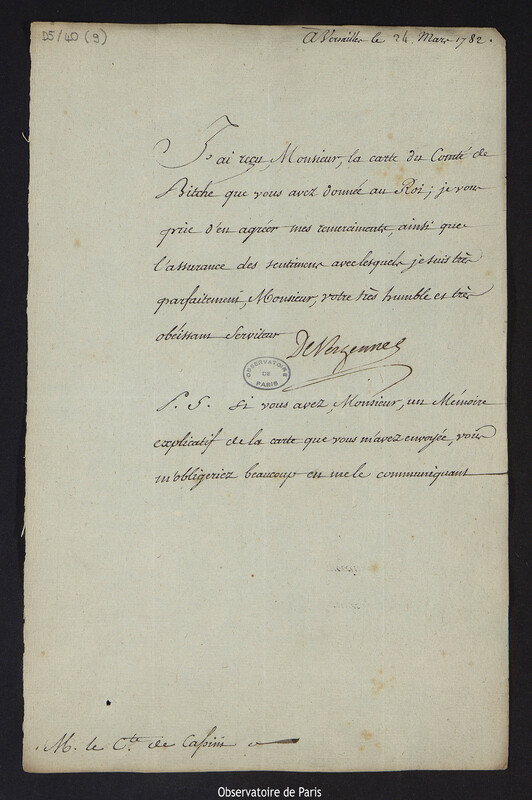 D5/40 (9)
A Versailles le 24 Mars 1782.
J'ai reçu Monsieur, la carte du Comté de
Bitche que vous avez donnée au Roi; je vous
prie d'en agréer mes remerciments, ainsi que
l'assurance des sentimens avec lesquels je suis très
parfaitement, Monsieur, votre très humble et très
obéissant Serviteur
De Vergennes
OBSERVATOIRE
DE
PARIS
P. S. Si vous avez, Monsieur, un Mémoire
explicatif de la carte que vous m'avez envoyée, vous
m'obligeriez beaucoup en me le communiquant
M. le Cte de Cassini
Observatoire de Paris